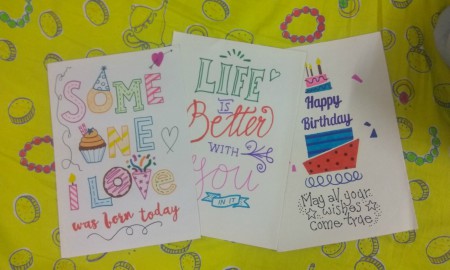 SOME
ONE
I LOVE
was born today
LIFE
IS
Better
WITH
You
IN IT
Happy
Birthday
May all your
wishes
come true